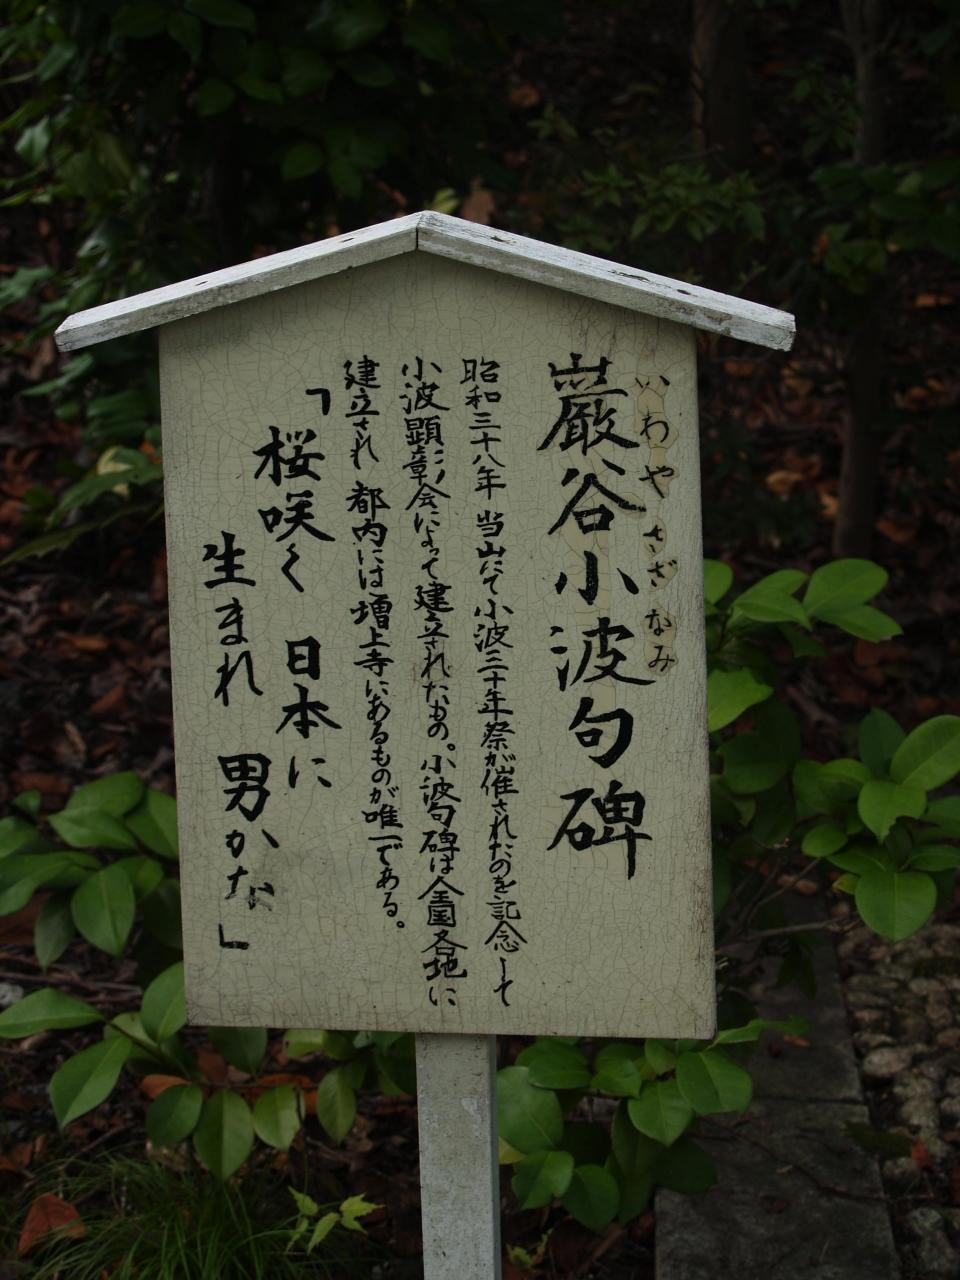 巌谷小波句碑
いわや さざなみ
昭和三十八年 当山にて小波三十年祭が催されたのを記念して
小波顕彰会によって建立されたもの。小波句碑は全国各地に
建立され 都内には増上寺にあるものが唯一である。
「桜咲く 日本に
生まれ 男かな」